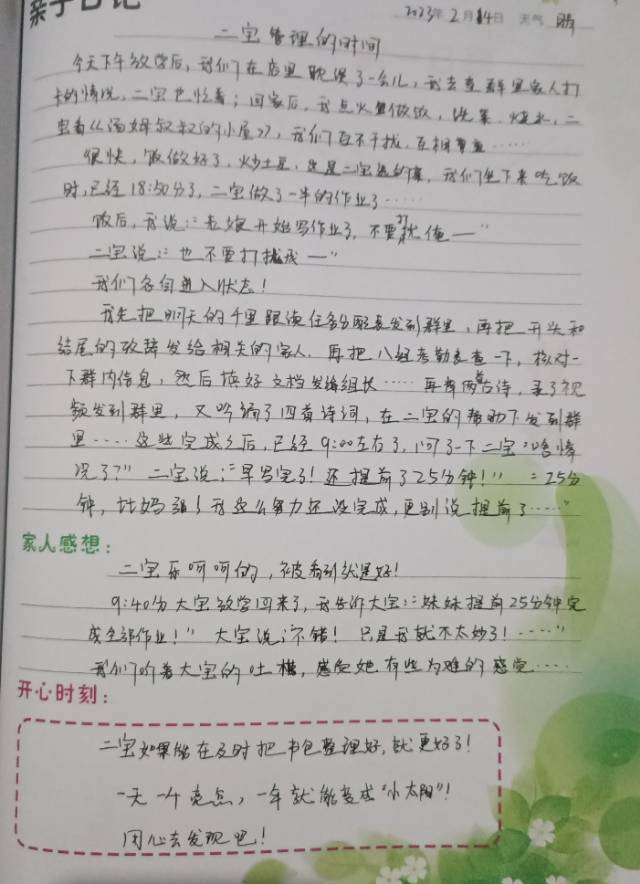 亲子日记
2023年2月14日 天气 晴
二宝管理的时间
今天下午放学后，我们在店里耽误了一会儿，我去查群里家人打
卡的情况，二宝也忙着；回家后，我点火做饭，洗菜、烧水，二
宝看《汤姆叔叔的小屋》，我们互不干扰，互相尊重……
很快，饭做好了，炒土豆，这是二宝选的菜，我们坐下来吃饭
时，已经18:50分了，二宝做了一半的作业了……
饭后，我说："老娘开始写作业了，不要打扰俺—"
二宝说："也不要打扰我—"
我们各自进入状态！
我先把明天的千里跟读任务分配表发到群里，再把开头和
结尾的致辞发给相关的家人，再把八组考勤表查一下，核对一
下群内信息，然后填好文档发给组长……再背两首古诗，录了视
频发到群里，又吟诵了四首诗词，在二宝的帮助下发到群
里……这些完成之后，已经9:00左右了，问了一下二宝："啥情
况了？"二宝说："早写完了！还提前了25分钟！""25分
钟，比妈强！我这么努力还没完成，更别说提前了……"
家人感想：
二宝乐呵呵的，被看到就是好！
9:40分大宝放学回来了，我告诉大宝："妹妹提前25分钟完
成全部作业！"大宝说："不错！只是我就不太妙了！……"
我们听着大宝的吐槽，感觉她有些为难的感觉……
开心时刻：
二宝如果能在及时把书包整理好，就更好了！
一天一个亮点，一年就能变成"小太阳"！
用心去发现吧！